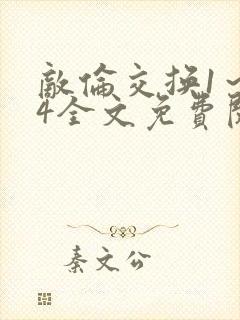 敵倫交换1~
4全文免費閱
秦文公